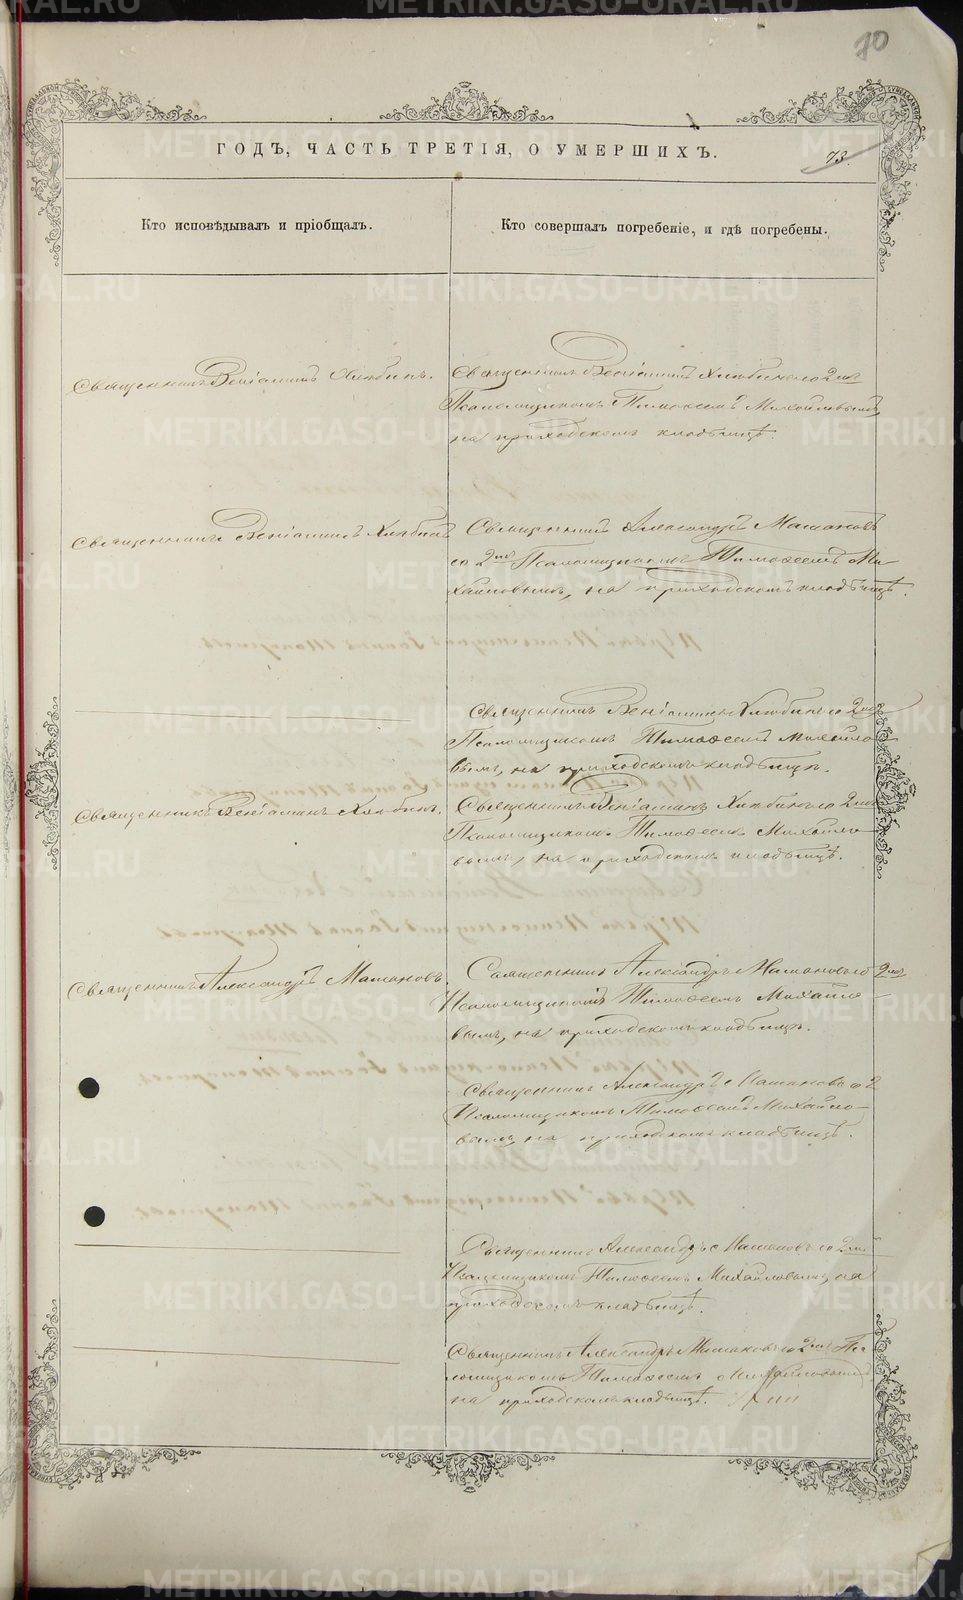 70
ГОДЪ, ЧАСТЬ ТРЕТІЯ, О УМЕРШИХЪ.
73.
Кто исповѣдывалъ и пріобщалъ.
Кто совершалъ погребеніе, и гдѣ погребены.
Священникъ Веніаминъ Хлябинъ.
Священникъ Веніаминъ Хлябинъ со 2мъ
Псаломщикомъ Тимофеемъ Михайловымъ,
на приходскомъ кладбищѣ.
Священникъ Веніаминъ Хлябинъ
Священникъ Александръ
со 2мъ Псаломщикомъ Тимофеемъ Ми-
хайловымъ, на приходскомъ кладбищѣ.
Священникъ Веніаминъ Хлябинъ со 2мъ
Псаломщикомъ Тимофеемъ Михайло-
вымъ, на приходскомъ кладбищѣ.
Священникъ Веніаминъ Хлябинъ.
Священникъ Веніаминъ Хлябинъ со 2мъ
Псаломщикомъ Тимофеемъ Михайло-
вымъ, на приходскомъ кладбищѣ.
Священникъ Александръ
Священникъ Александръ со 2мъ
Псаломщикомъ Тимофеемъ Михайло-
вымъ, на приходскомъ кладбищѣ.
Священникъ Александръ со 2
Псаломщикомъ Тимофеемъ Михайло-
вымъ, на приходскомъ кладбищѣ.
Священникъ Александръ со 2мъ
Псаломщикомъ Тимофеемъ Михайловымъ, на
приходскомъ кладбищѣ.
Священникъ Александръ со 2мъ Пса-
ломщикомъ Тимофеемъ Михайловымъ,
на приходскомъ кладбищѣ.
METRIKI.GASO-URAL.RU